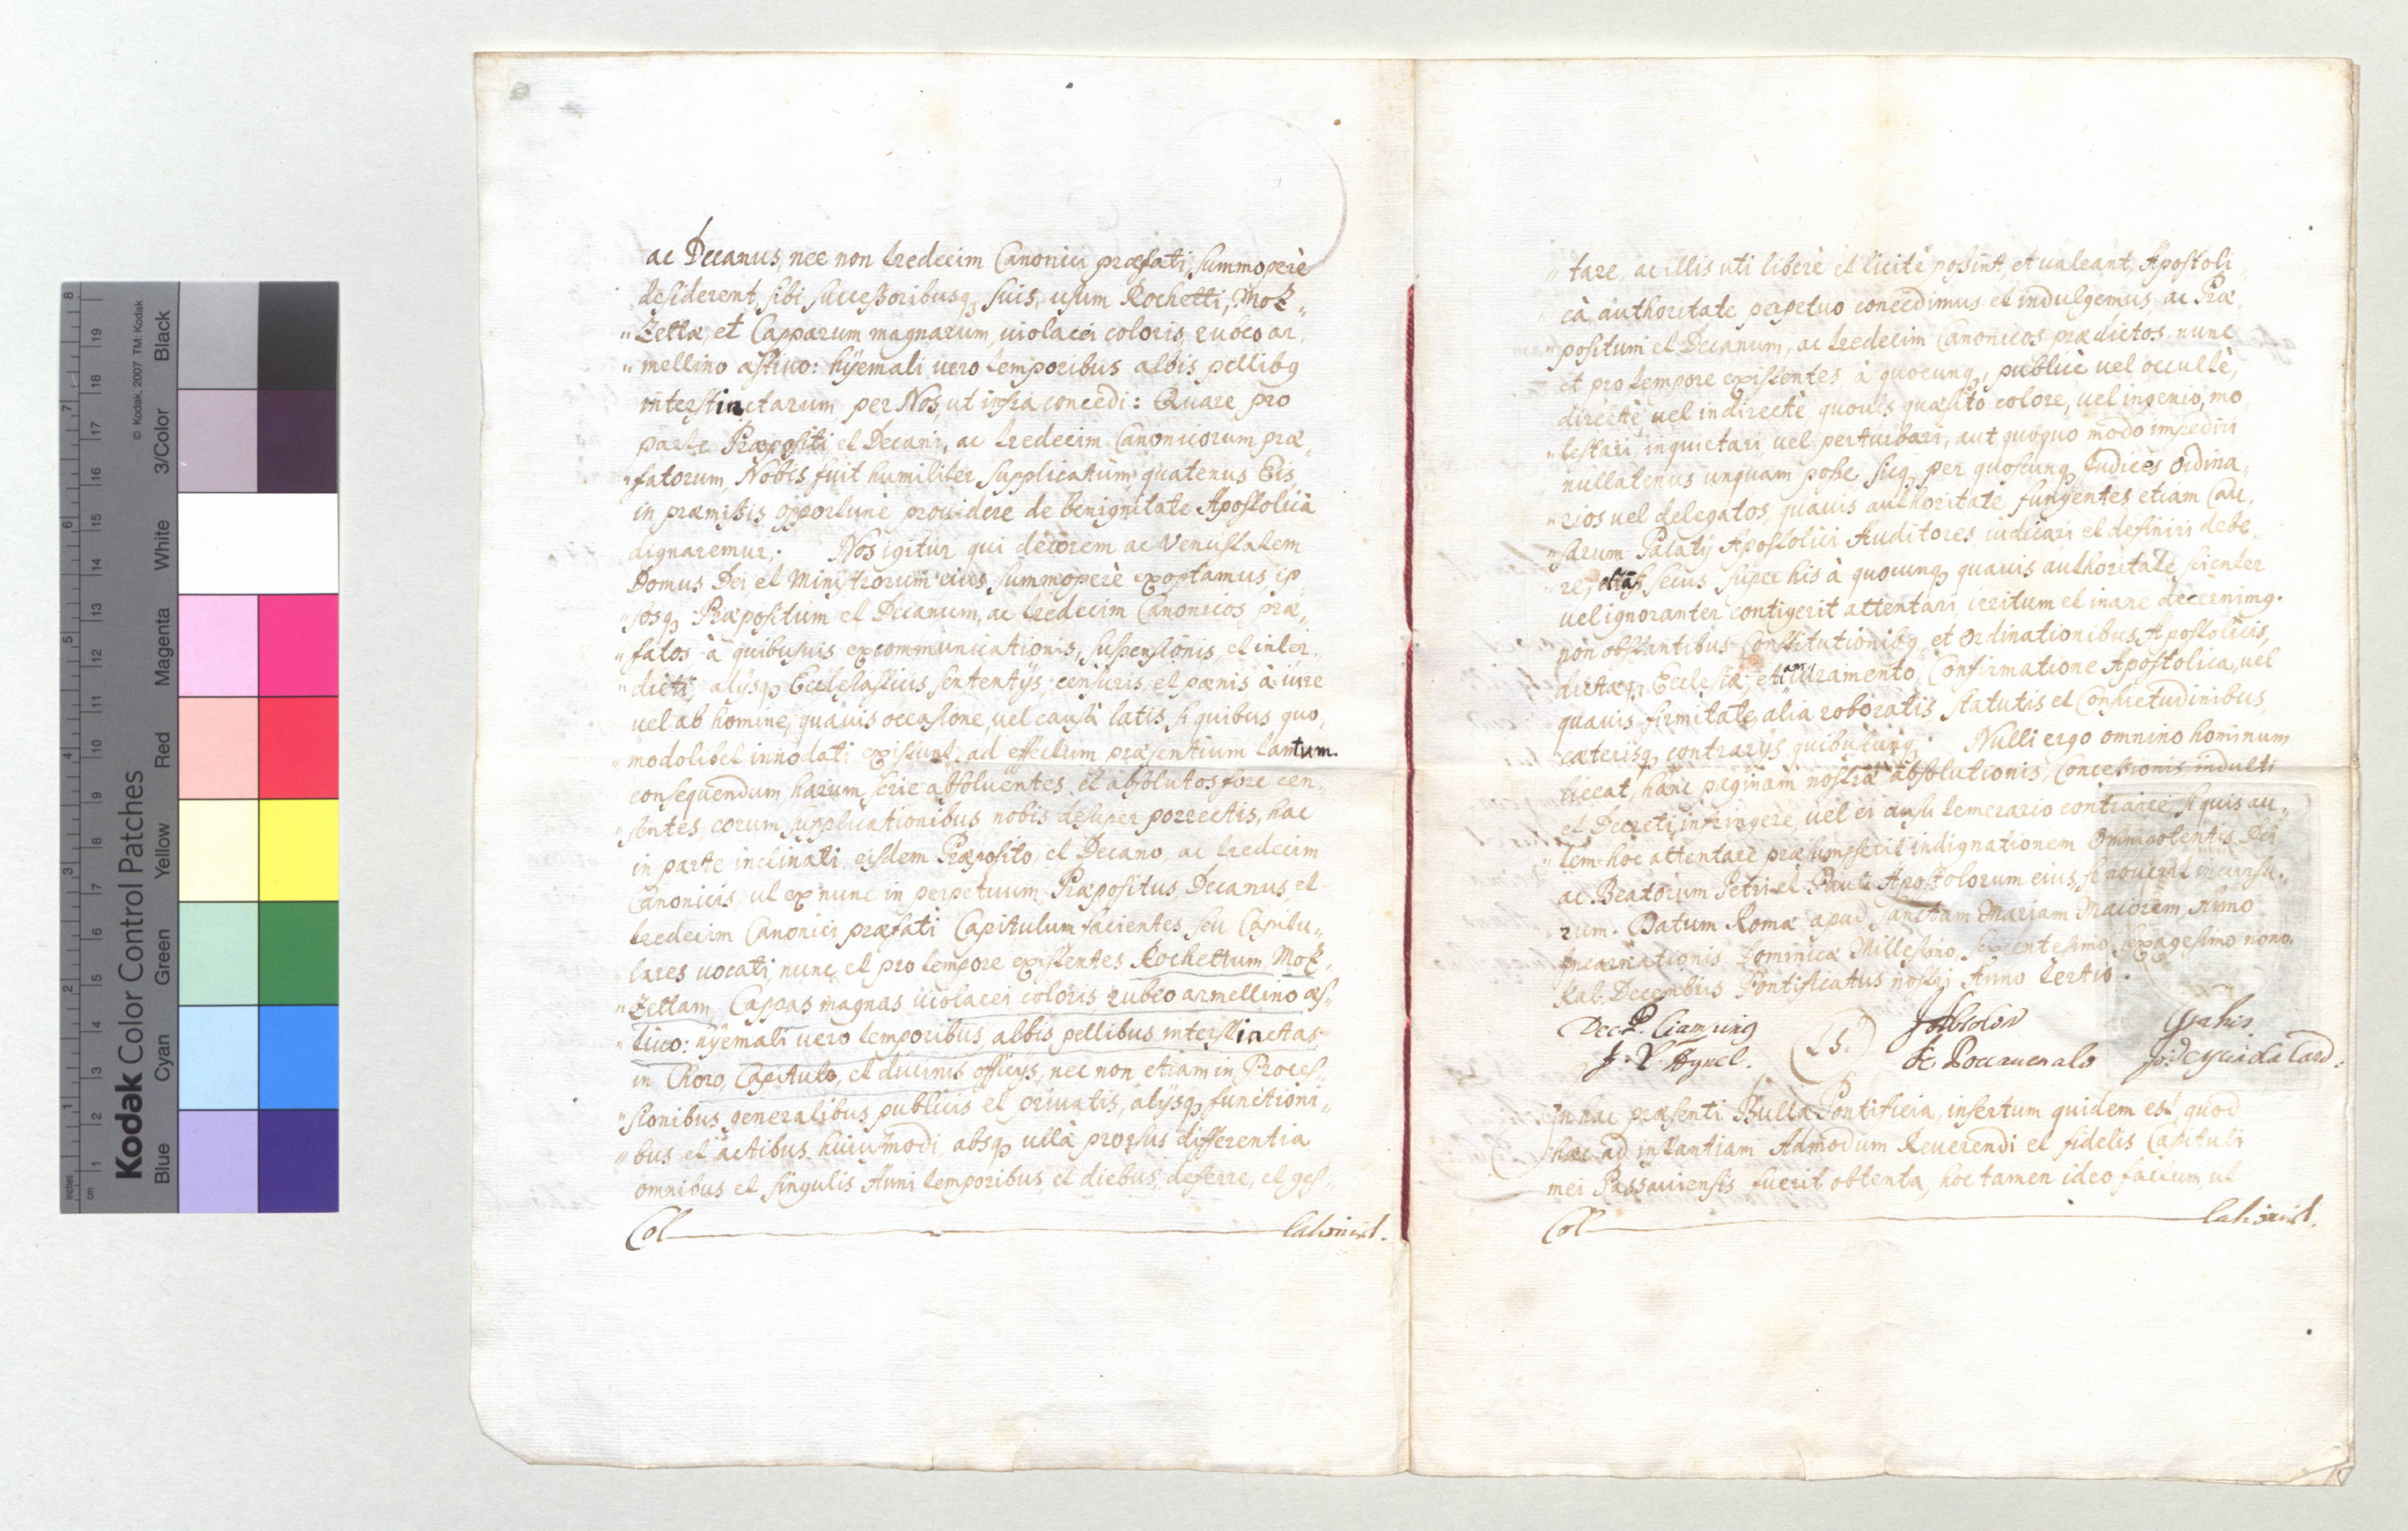 Kodak Color Control Patches
© Kodak, 2007 TM: Kodak
inches 1 2 3 4 5 6 7 8
cm 1 2 3 4 5 6 7 8 9 10 11 12 13 14 15 16 17 18 19
Blue Cyan Green Yellow Red Magenta White 3/Color Black
ac Decanus, nec non tredecim Canonici præfati, summoperè
desiderent, sibi successoribusq; suis, usum Rochetti, Moz„
„Zettæ, et Capparum magnarum, uiolacei coloris, rubeo ar„
„mellino æstiuo: hÿemali uero temporibus albis pellibq
interstinctarum per Nos ut infra concedi: Quare pro
parte Præpositi, et Decani, ac tredecim Canonicorum præ„
„fatorum, Nobis fuit humiliter supplicatum quatenus Eis
in præmissis opportunè prouidere de benignitate Apostolicâ
dignaremur; Nos igitur qui decorem ac Venustatem
Domus Dei et Ministrorum eius summoperè exoptamus, ip„
„sosq; Præpositum et Decanum, ac tredecim Canonicos præ„
„fatos, à quibusuis excommunicationis, suspensionis, et inter„
„dicti, alÿsq; Ecclesiasticis sententÿs, censuris, et pænis à iure
uel ab homine, quauis occasione, uel causâ latis, si quibus quo„
„modolibet innodati existunt, ad effectum præsentium tantum.
consequendum, harum serie absoluentes, et absolutos fore cen„
„sentes, eorum supplicationibus nobis desuper porrectis, hac
in parte inclinati, eisdem Præposito, et Decano, ac tredecim
Canonicis, ut ex nunc in perpetuum, Præpositus, Decanus, et
tredecim Canonici præfati Capitulum facientes, seu Capitu„
„lares uocati, nunc et pro tempore existentes Rochettum, Moz„
„Zettam, Cappas magnas uiolacei coloris, rubeo armellino æs„
„tiuo: hÿemali uero temporibus, albis pellibus interstinctas
in Choro, Capitulo, et diuinis officÿs, nec non etiam in Proces„
„sionibus generalibus publicis et priuatis, alÿsq; functioni„
„bus et actibus huiusmodi, absq; ullâ prorsus differentia
omnibus et singulis Anni temporibus, et diebus, deferre, et ges„
Col
„tare, ac illis uti liberè et licitè possint, et ualeant, Apostoli„
„câ authoritate perpetuo concedimus et indulgemus, ac Præ„
„positum et Decanum, ac tredecim Canonicos prædictos, nunc
et pro tempore existentes, à quocunq;, publicè uel occultè,
directè, uel indirectè, quouis quæsito colore, uel ingenio, mo„
„lestari, inquietari uel perturbari, aut quoquo modo impediri
nullatenus unquam posse, sicq; per quoscunq; Iudices ordina„
„rios uel delegatos, quauis authoritate fungentes, etiam Cau„
„sarum Palatÿ Apostolici Auditores, iudicari et definiri debe„
„re, secus super his à quocunq; quauis authoritate, scienter
uel ignoranter contigerit attentari, irritum et inane decernimq.
non obstantibus Constitutionibq, et ordinationibus Apostolicis,
dictæq; Ecclesiæ, etiam iuramento, Confirmatione Apostolica, uel
quauis firmitate alia roboratis statutis et Consuetudinibus,
cæterisq; contrarÿs quibuscunq; Nulli ergo omnino hominum
liceat, hanc paginam nostræ absolutionis, Concessionis, indulti
et Decreti, infringere, uel ei ausu temerario contraire, si quis au„
„tem hoc attentare præsumpserit indignationem Omnipotentis Dei
ac Beatorum Petri et Pauli Apostolorum eius, se nouerit incursu„
„rum. Datum Romæ apud Sanctam Mariam Maiorem, Anno
Incarnationis Dominicæ Millesimo, sexcentesimo sexagesimo nono,
Kal. Decembris Pontificatus nostri Anno tertio.
(L.S.)
In hac præsenti Bulla Pontificia, insertum quidem est, quod
hæc ad instantiam Admodum Reuerendi et fidelis Capituli
mei Passauiensis fuerit obtenta, hoc tamen ideo factum, ut
Col